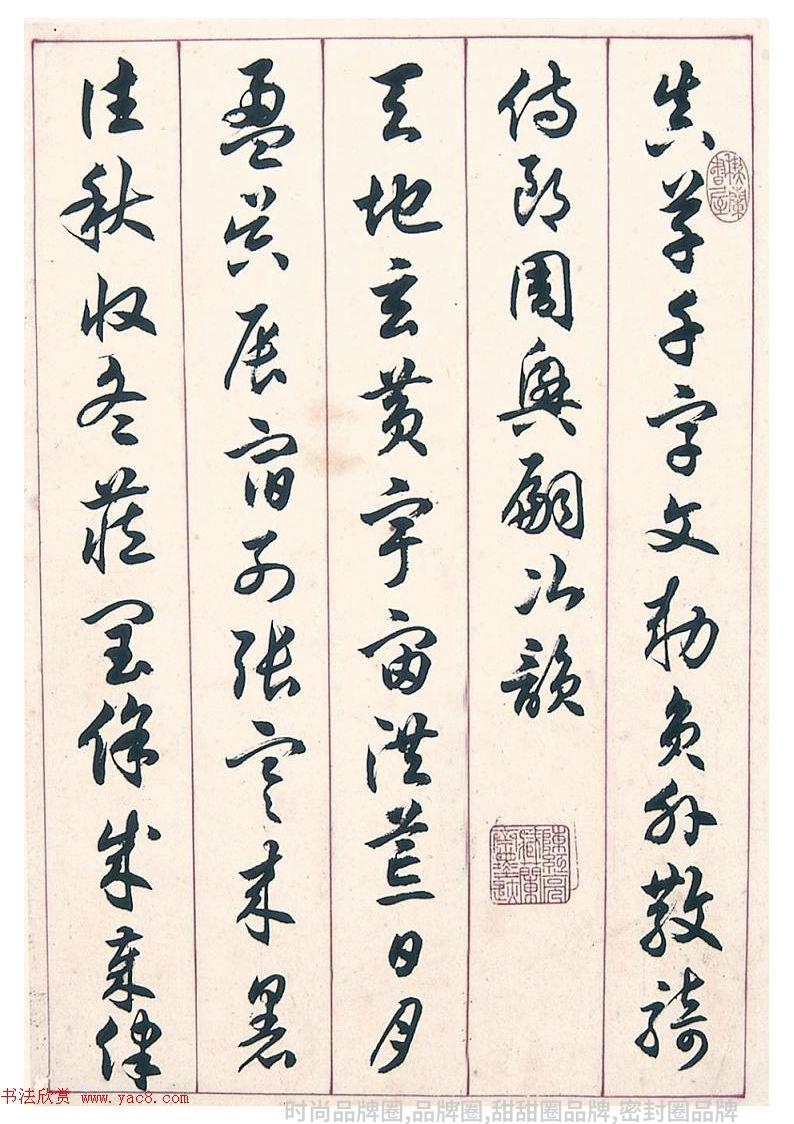 真草千字文勅員外散騎
侍郎周興嗣次韻
天地玄黃宇宙洪荒日月
盈昃辰宿列張寒來暑
往秋收冬藏閏餘成歲律
书法欣赏 www.yac8.com
时尚品牌圈,品牌圈,甜甜圈品牌,密封圈品牌